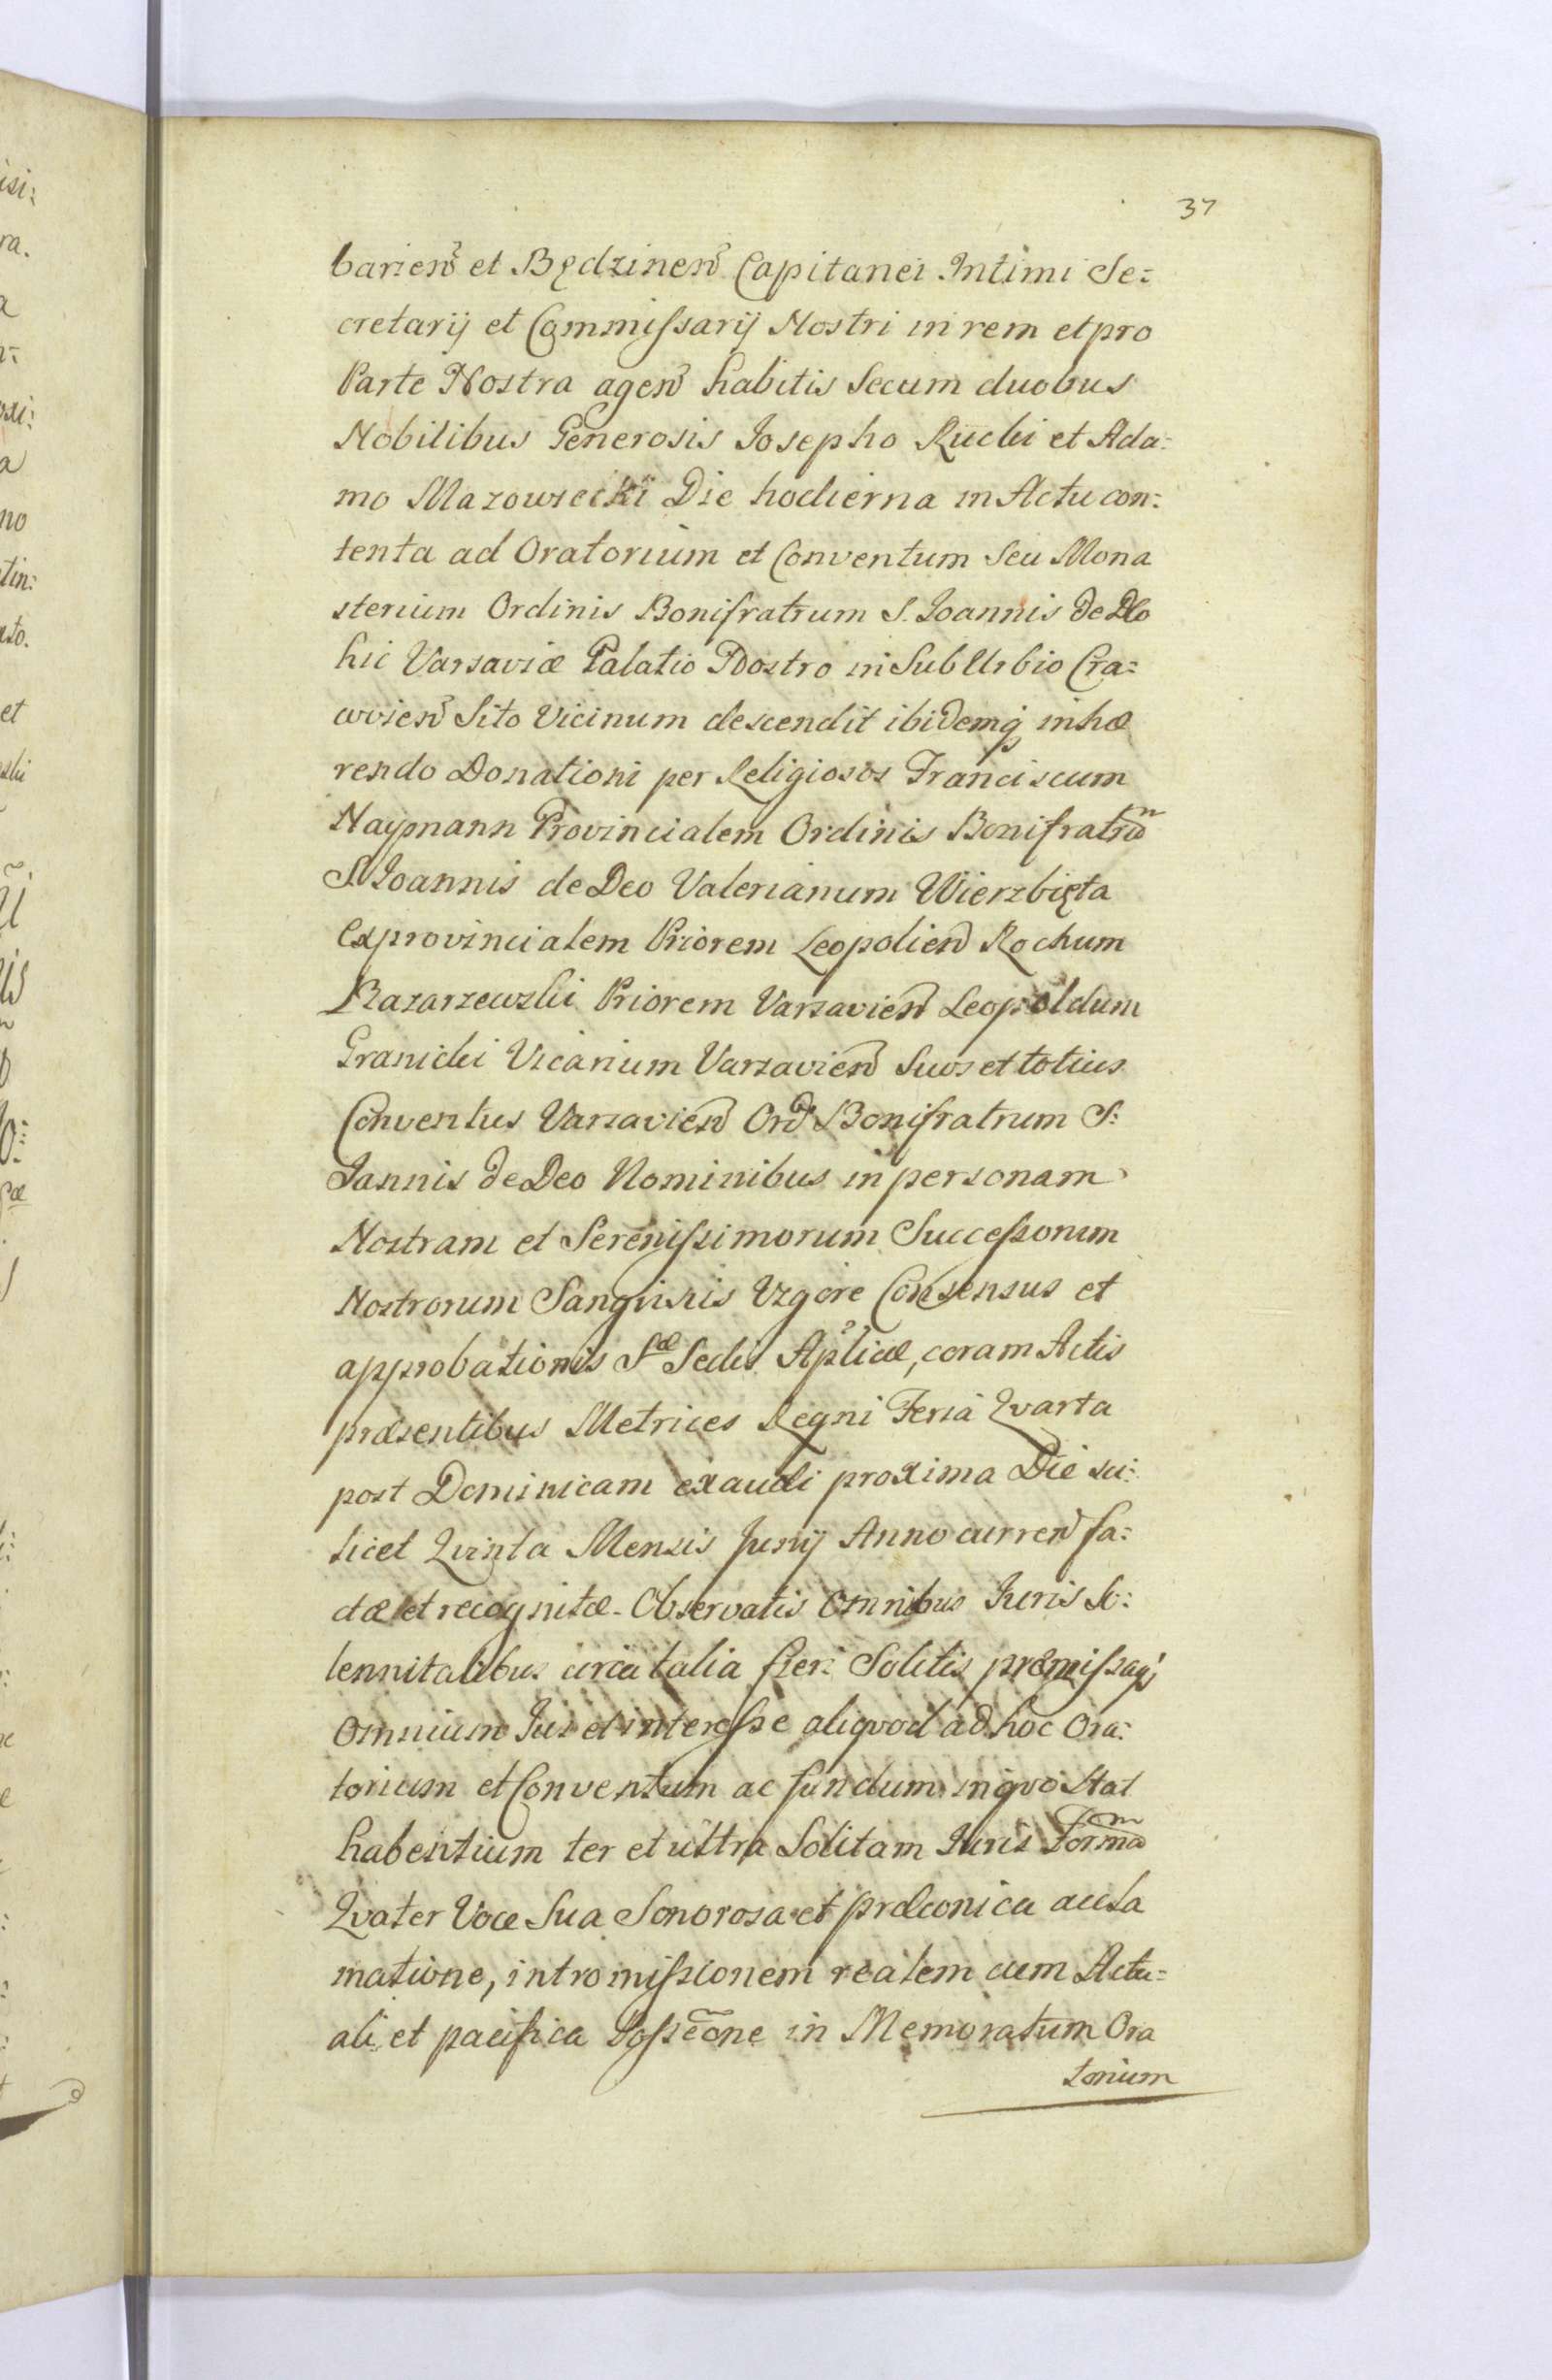 37
barien̄ et Będzinen̄ Capitanei Intimi Se:
cretarij et Commiſsarij Nostri in rem et pro
Parte Nostra agen̄ habitis Secum duobus
Nobilibus Generosis Josepho Rucki et Ada:
mo Mazowiecki Die hodierna in Actu con:
tenta ad Oratorium et Conventum Seu Mona
sterium Ordinis Bonifratrum S. Joannis de Deo
hic Varsaviæ Palatio Nostro in SubUrbio Cra:
covien̄ Sito Vicinum descendit ibidemq̢ inhæ
rendo Donationi per Religiosos Franciscum
Naymann Provincialem Ordinis Bonifratrūm
S. Joannis de Deo Valerianum Wierzbięta
Exprovincialem Priorem Leopolien̄ Rochum
Kazarzewski Priorem Varsavien̄ Leopoldum
Granicki Vicarium Varsavien̄ Suos et totius
Conventus Varsavien̄ Ord̄ Bonifratrum S:
Jannis de Deo Nominibus in personam
Nostram et Sereniſsimorum Succeſsorum
Nostrorum Sangvinis Vigore Consensus et
approbationis Sæ Sedis Aplicæ, coram Actis
præsentibus Metrices Regni Feria Qvarta
post Dominicam exaudi proxima Die sci:
licet Qvinta Mensis Junij Anno curren̄ fa:
ctæ et recognitæ. Observatis Omnibus Juris So:
lennitatibus circa talia fieri Solitis præmiſsaq̢
Omnium Jus et intereſse aliqvod ad hoc Ora:
torium et Conventum ac fundum in qvo Stat
habentium ter et ultra Solitam Juris Formām
Qvater Voce Sua Sonorosa et præconica accla
matione, intromiſsionem realem cum Actu:
ali et pacifica Poſseōne in Memoratum Ora
torium